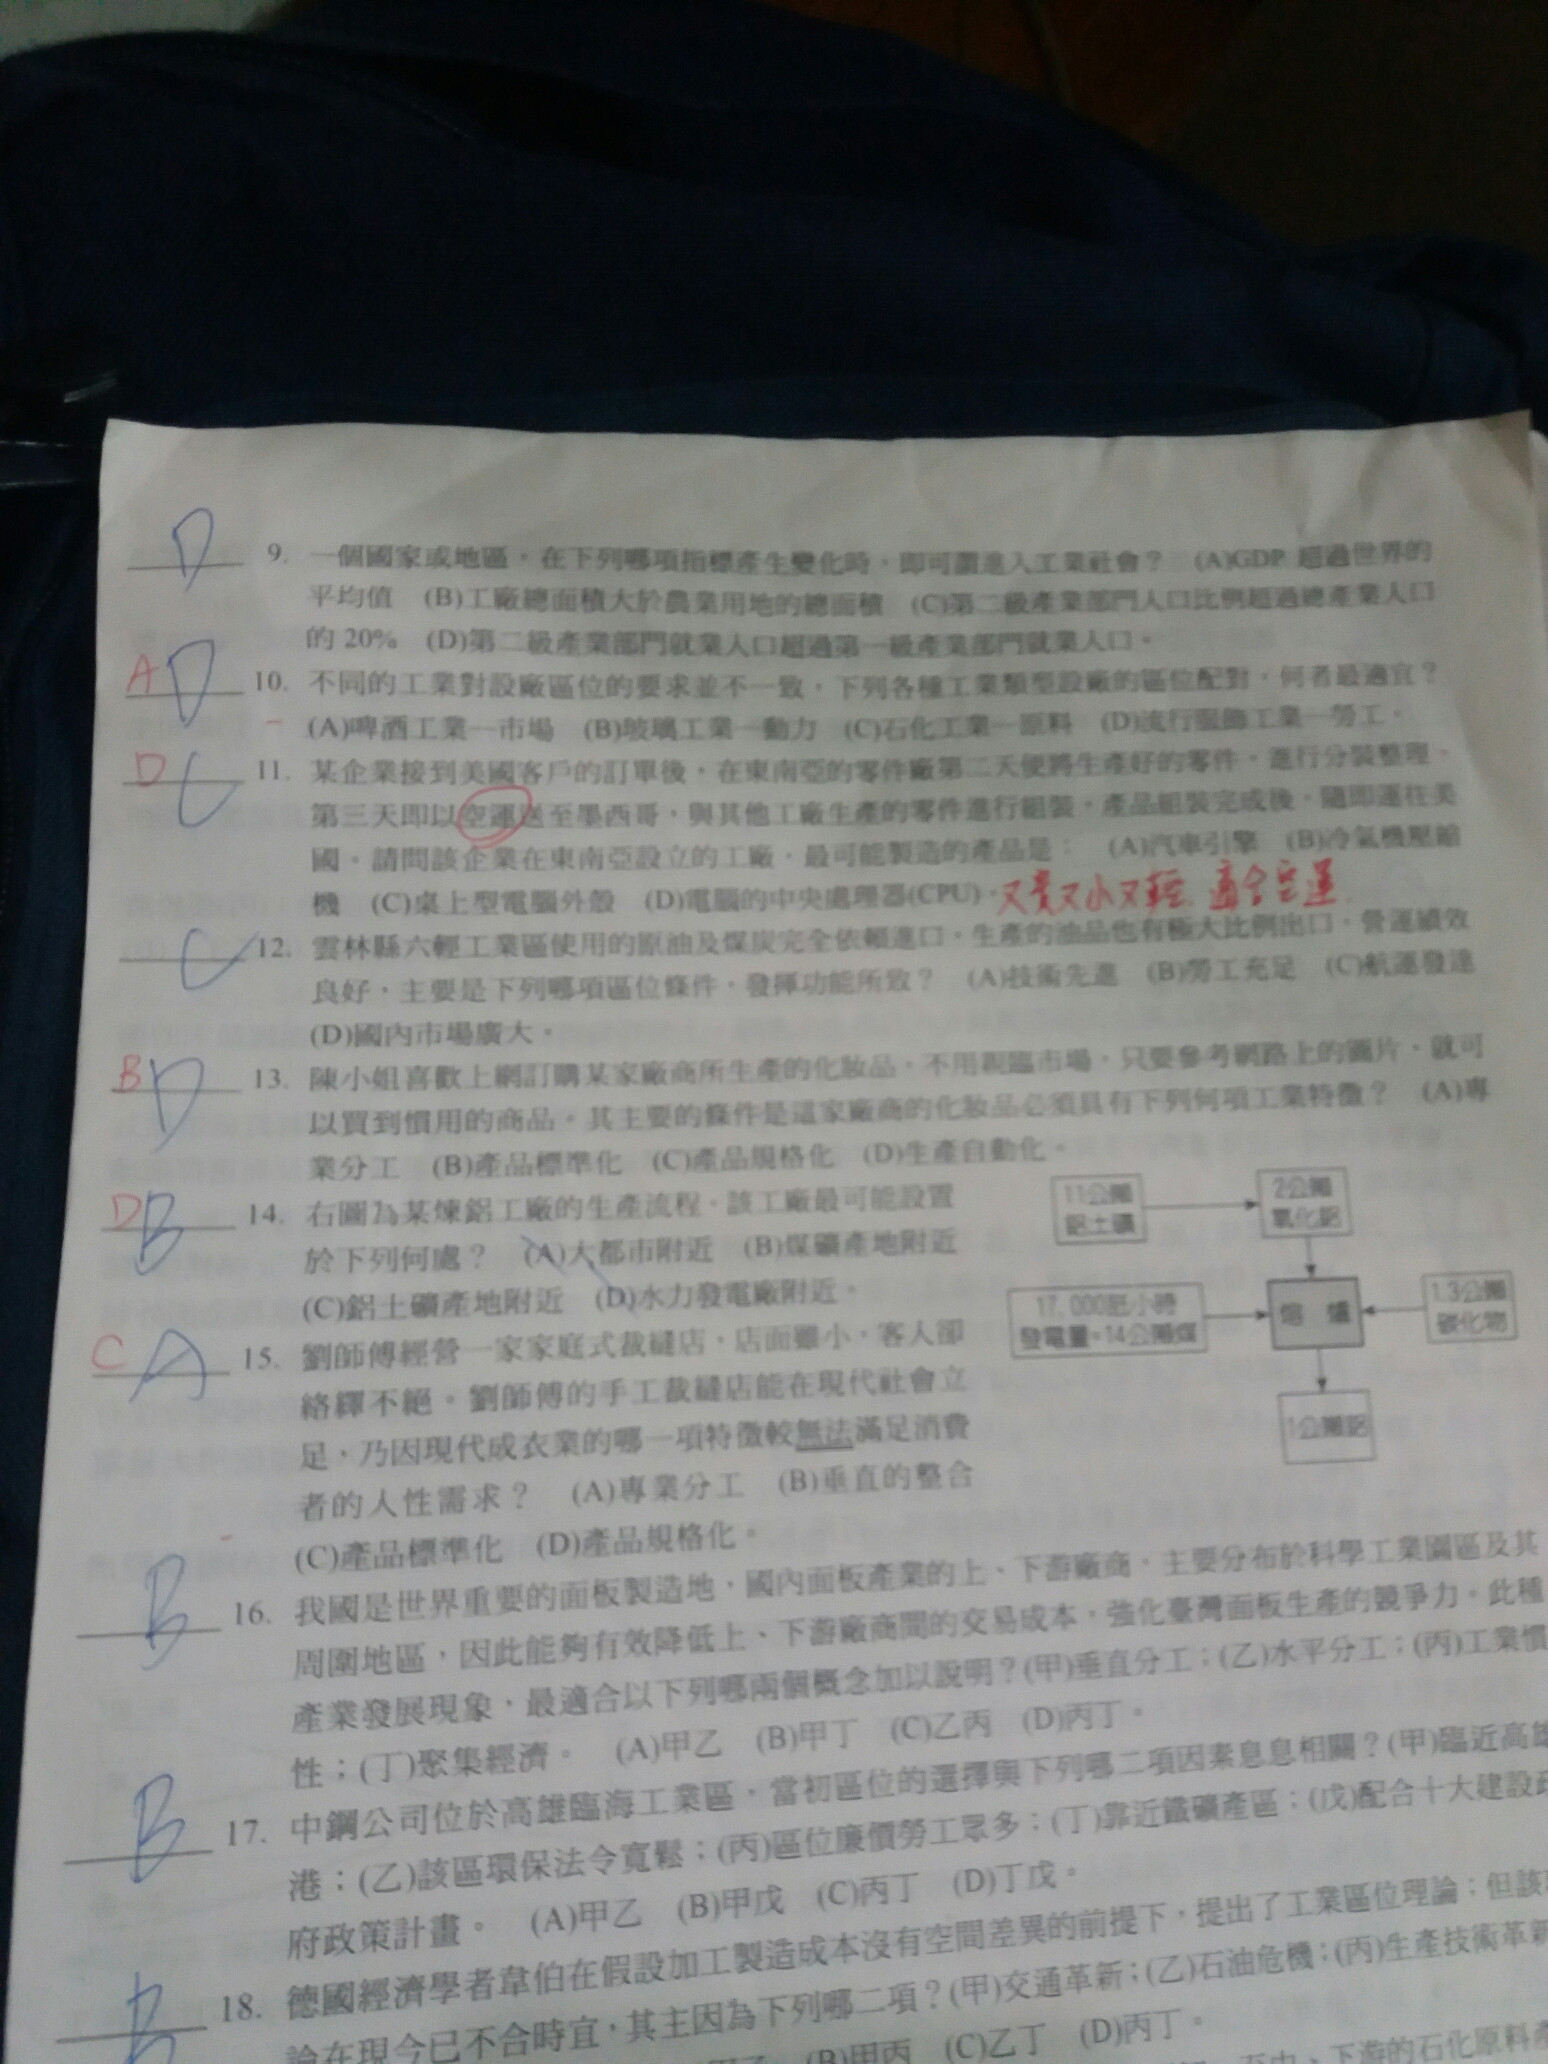 D 9. 一個國家或地區，在下列哪項指標產生變化時，即可謂進入工業社會？ (A)GDP 超過世界的
平均值 (B)工廠總面積大於農業用地的總面積 (C)第二級產業部門人口比例超過總產業人口
的 20% (D)第二級產業部門就業人口超過第一級產業部門就業人口。
A D 10. 不同的工業對設廠區位的要求並不一致，下列各種工業類型設廠的區位配對，何者最適宜？
(A)啤酒工業—市場 (B)玻璃工業—動力 (C)石化工業—原料 (D)流行服飾工業—勞工。
D C 11. 某企業接到美國客戶的訂單後，在東南亞的零件廠第二天便將生產好的零件，進行分裝整理，
第三天即以空運送至墨西哥，與其他工廠生產的零件進行組裝。產品組裝完成後，隨即運往美
國。請問該企業在東南亞設立的工廠，最可能製造的產品是： (A)汽車引擎 (B)冷氣機壓縮
機 (C)桌上型電腦外殼 (D)電腦的中央處理器(CPU)。又貴又小又輕 適合空運
C 12. 雲林縣六輕工業區使用的原油及煤炭完全依賴進口，生產的油品也有極大比例出口，營運績效
良好，主要是下列哪項區位條件，發揮功能所致？ (A)技術先進 (B)勞工充足 (C)航運發達
(D)國內市場廣大。
B D 13. 陳小姐喜歡上網訂購某家廠商所生產的化妝品，不用親臨市場，只要參考網路上的圖片，就可
以買到慣用的商品。其主要的條件是這家廠商的化妝品必須具有下列何項工業特徵？ (A)專
業分工 (B)產品標準化 (C)產品規格化 (D)生產自動化。
D B 14. 右圖為某煉鋁工廠的生產流程，該工廠最可能設置
於下列何處？ (A)大都市附近 (B)煤礦產地附近
(C)鋁土礦產地附近 (D)水力發電廠附近。
11公噸
鋁土礦
2公噸
氧化鋁
17,000瓩小時
發電量=14公噸煤
熔 爐
1.3公噸
碳化物
1公噸鋁
C A 15. 劉師傅經營一家家庭式裁縫店，店面雖小，客人卻
絡繹不絕。劉師傅的手工裁縫店能在現代社會立
足，乃因現代成衣業的哪一項特徵較無法滿足消費
者的人性需求？ (A)專業分工 (B)垂直的整合
(C)產品標準化 (D)產品規格化。
B 16. 我國是世界重要的面板製造地，國內面板產業的上、下游廠商，主要分布於科學工業園區及其
周圍地區，因此能夠有效降低上、下游廠商間的交易成本，強化臺灣面板生產的競爭力。此種
產業發展現象，最適合以下列哪兩個概念加以說明？(甲)垂直分工；(乙)水平分工；(丙)工業慣
性；(丁)聚集經濟。 (A)甲乙 (B)甲丁 (C)乙丙 (D)丙丁。
B 17. 中鋼公司位於高雄臨海工業區，當初區位的選擇與下列哪二項因素息息相關？(甲)臨近高雄
港；(乙)該區環保法令寬鬆；(丙)區位廉價勞工眾多；(丁)靠近鐵礦產區；(戊)配合十大建設政
府政策計畫。 (A)甲乙 (B)甲戊 (C)丙丁 (D)丁戊。
B 18. 德國經濟學者韋伯在假設加工製造成本沒有空間差異的前提下，提出了工業區位理論；但該理
論在現今已不合時宜，其主因為下列哪二項？(甲)交通革新；(乙)石油危機；(丙)生產技術革新
(B)甲丙 (C)乙丁 (D)丙丁。
下游的石化原料產